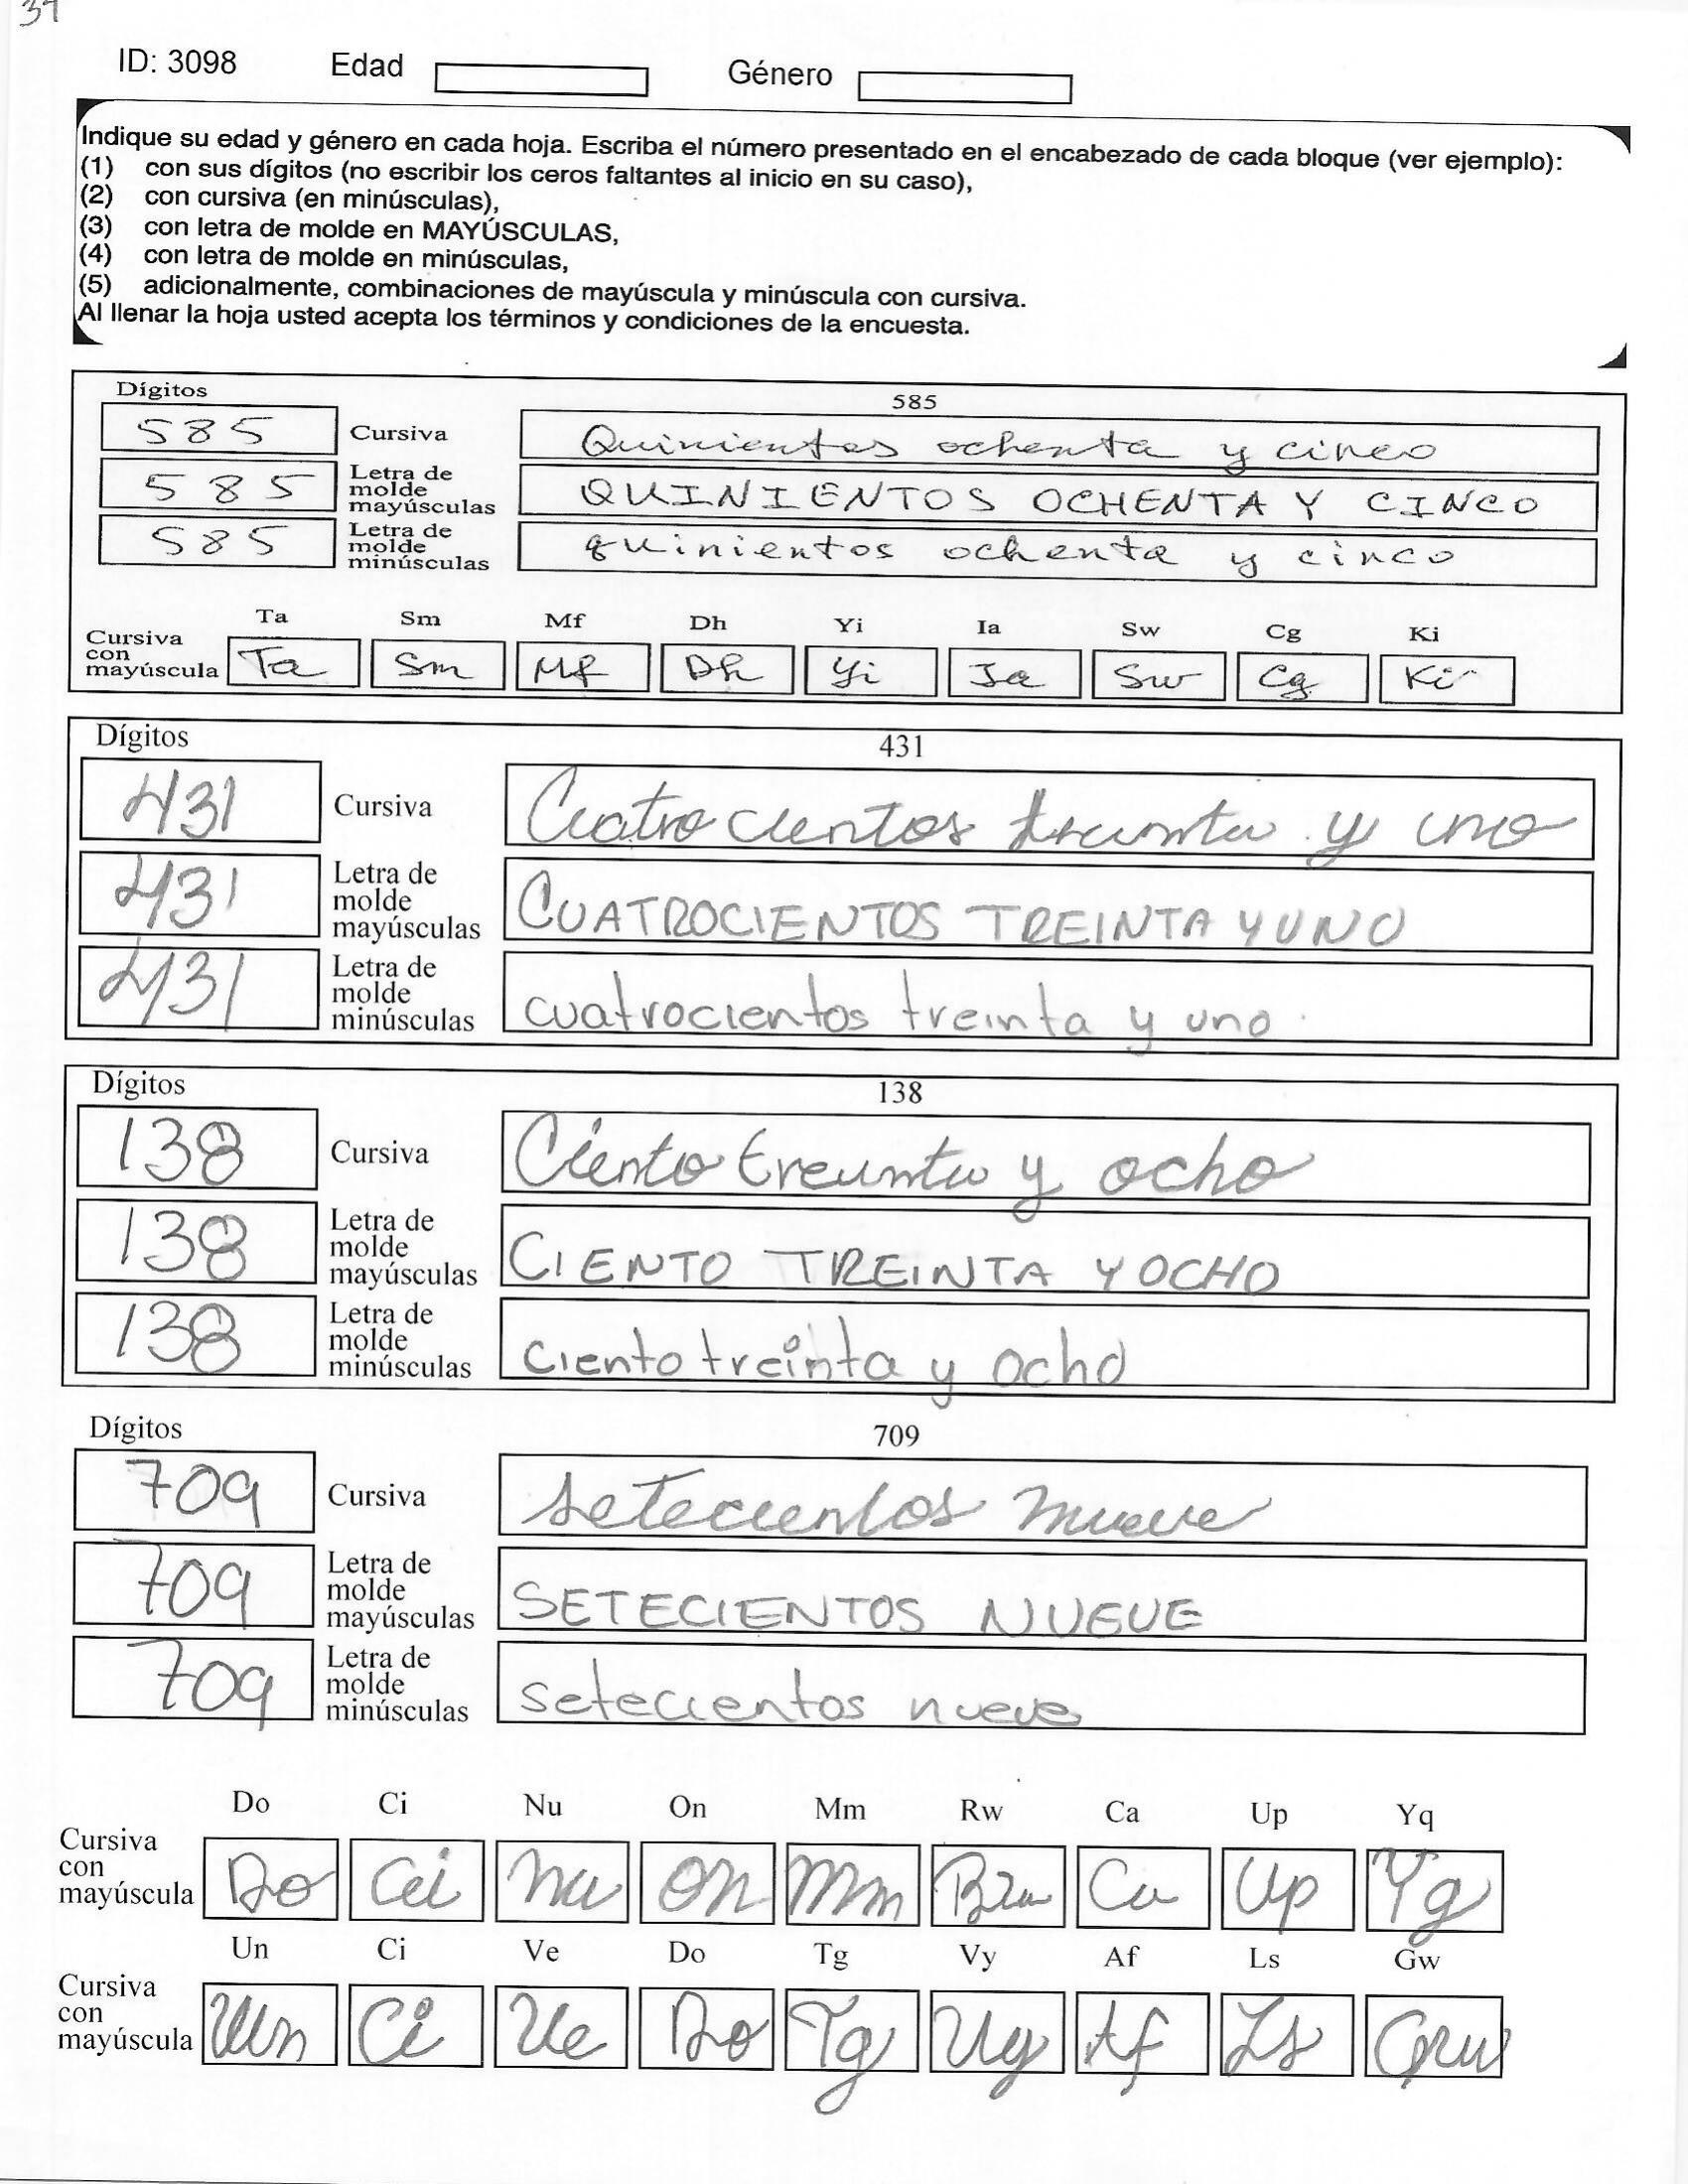 ID: 3098 Edad Género
Indique su edad y género en cada hoja. Escriba el número presentado en el encabezado de cada bloque (ver ejemplo):
(1) con sus dígitos (no escribir los ceros faltantes al inicio en su caso),
(2) con cursiva (en minúsculas),
(3) con letra de molde en MAYÚSCULAS,
(4) con letra de molde en minúsculas,
(5) adicionalmente, combinaciones de mayúscula y minúscula con cursiva.
Al llenar la hoja usted acepta los términos y condiciones de la encuesta.
Dígitos 585
585 Cursiva Quinientos ochenta y cinco
585 Letra de molde mayúsculas QUINIENTOS OCHENTA Y CINCO
585 Letra de molde minúsculas quinientos ochenta y cinco
Ta Sm Mf Dh Yi Ia Sw Cg Ki
Cursiva con mayúscula Ta Sm Mf Dh Yi Ia Sw Cg Ki
Dígitos 431
431 Cursiva Cuatrocientos treinta y uno
431 Letra de molde mayúsculas CUATROCIENTOS TREINTA Y UNO
431 Letra de molde minúsculas cuatrocientos treinta y uno
Dígitos 138
138 Cursiva Ciento treinta y ocho
138 Letra de molde mayúsculas CIENTO TREINTA Y OCHO
138 Letra de molde minúsculas ciento treinta y ocho
Dígitos 709
709 Cursiva setecientos nueve
709 Letra de molde mayúsculas SETECIENTOS NUEVE
709 Letra de molde minúsculas setecientos nueve
Do Ci Nu On Mm Rw Ca Up Yq
Cursiva con mayúscula Do Ci Nu On Mm Ca Up Yg
Un Ci Ve Do Tg Vy Af Ls Gw
Cursiva con mayúscula Un Ci Ve Do Tg Vy Af Ls